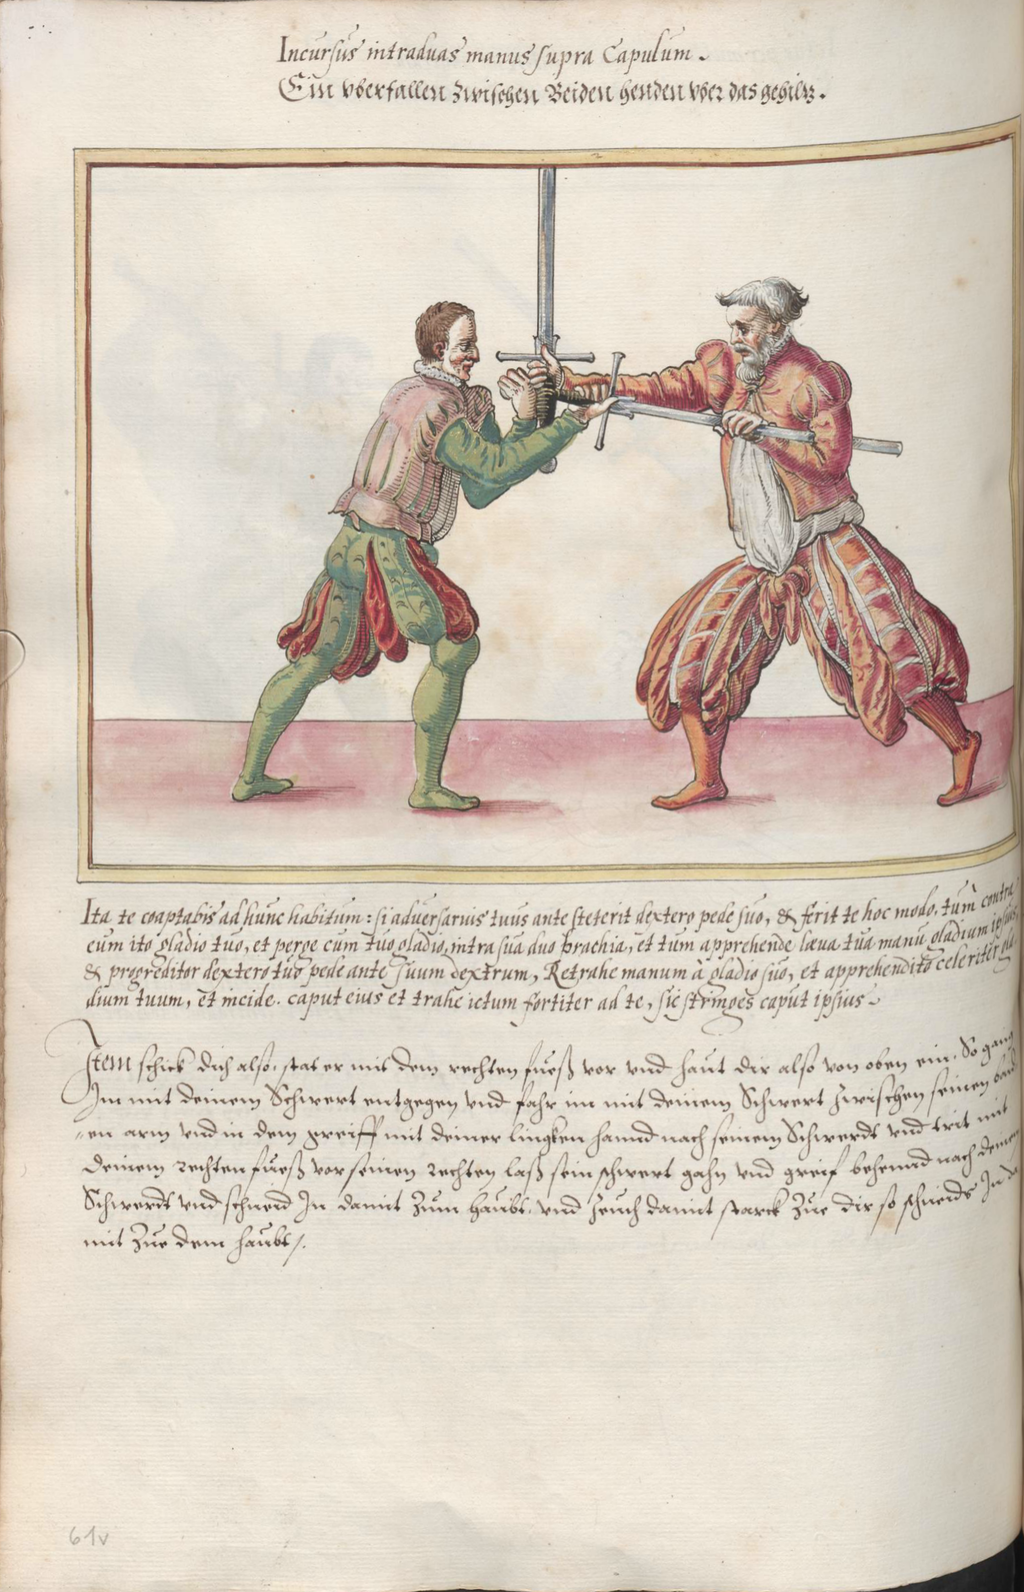 Incursus intra duas manus supra Capulum.
Ein vberfallen zwischen Beiden henden vber das gehiltz.
Ita te coaptabis ad hunc habitum: si adversarius tuus ante steterit dextero pede suo, & ferit te hoc modo, tum contra
eum ito gladio tuo, et perge cum tuo gladio, intra sua duo brachia, et tum apprehende læva tua manu gladium ipsius,
& progreditor dextero tuo pede ante suum dextrum, Retrahe manum à gladio suo, et apprehendito celeriter gla-
dium tuum, et incide. caput eius et trahe ictum fortiter ad te, sic stringes caput ipsius.
Item schick dich also, stat er mit dem rechten fueß vor vnd haut dir also von oben ein, So gang
Im mit deinem Schwert entgegen vnd fahr im mit deinem Schwert zwischen seinen
en arm vnd in dem greiff mit deiner lingken hannd nach seinem Schwerdt vnd trit mit
deinem rechten fueß vor seinen rechten laß sein schwert gahn vnd greif behennd nach deinem
Schwerdt vnd schneid In damit zum haubt, vnd zeuch damit starck zue dir so schneids In da
mit zue dem haubt.
61v